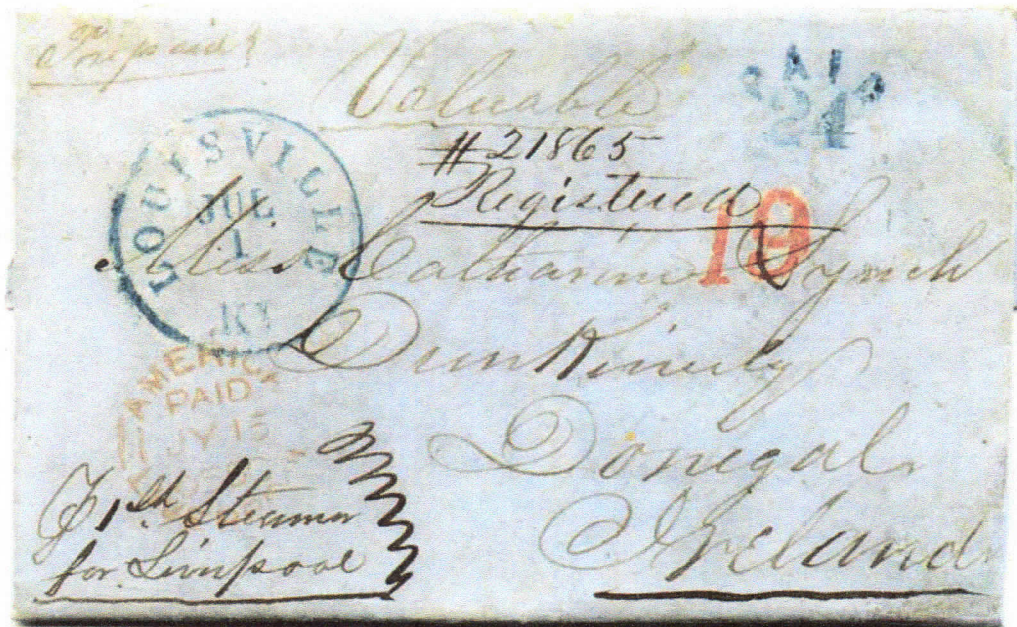 Prepaid
Valuable
PAID
24
#21865
Registered
LOUISVILLE
JUL
1
KY
19
Miss Catharine Lynch
DunKinuly
Donegal
Ireland
AMERICA
PAID
JY 15
1st Steamer
for Liverpool